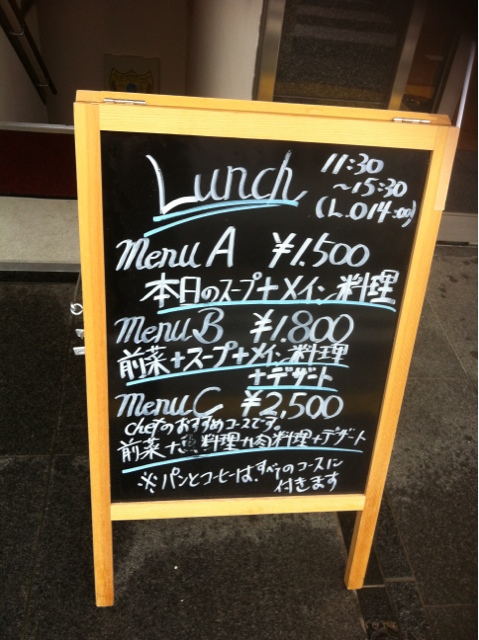 Lunch
11:30
~15:30
(L.O14:00)
Menu A ¥1.500
本日のスープ+メイン料理
Menu B ¥1.800
前菜+スープ+メイン料理
+デザート
Menu C ¥2,500
chefのおすすめコースです。
前菜+魚料理+肉料理+デザート
※パンとコーヒーは、すべてのコースに
付きます